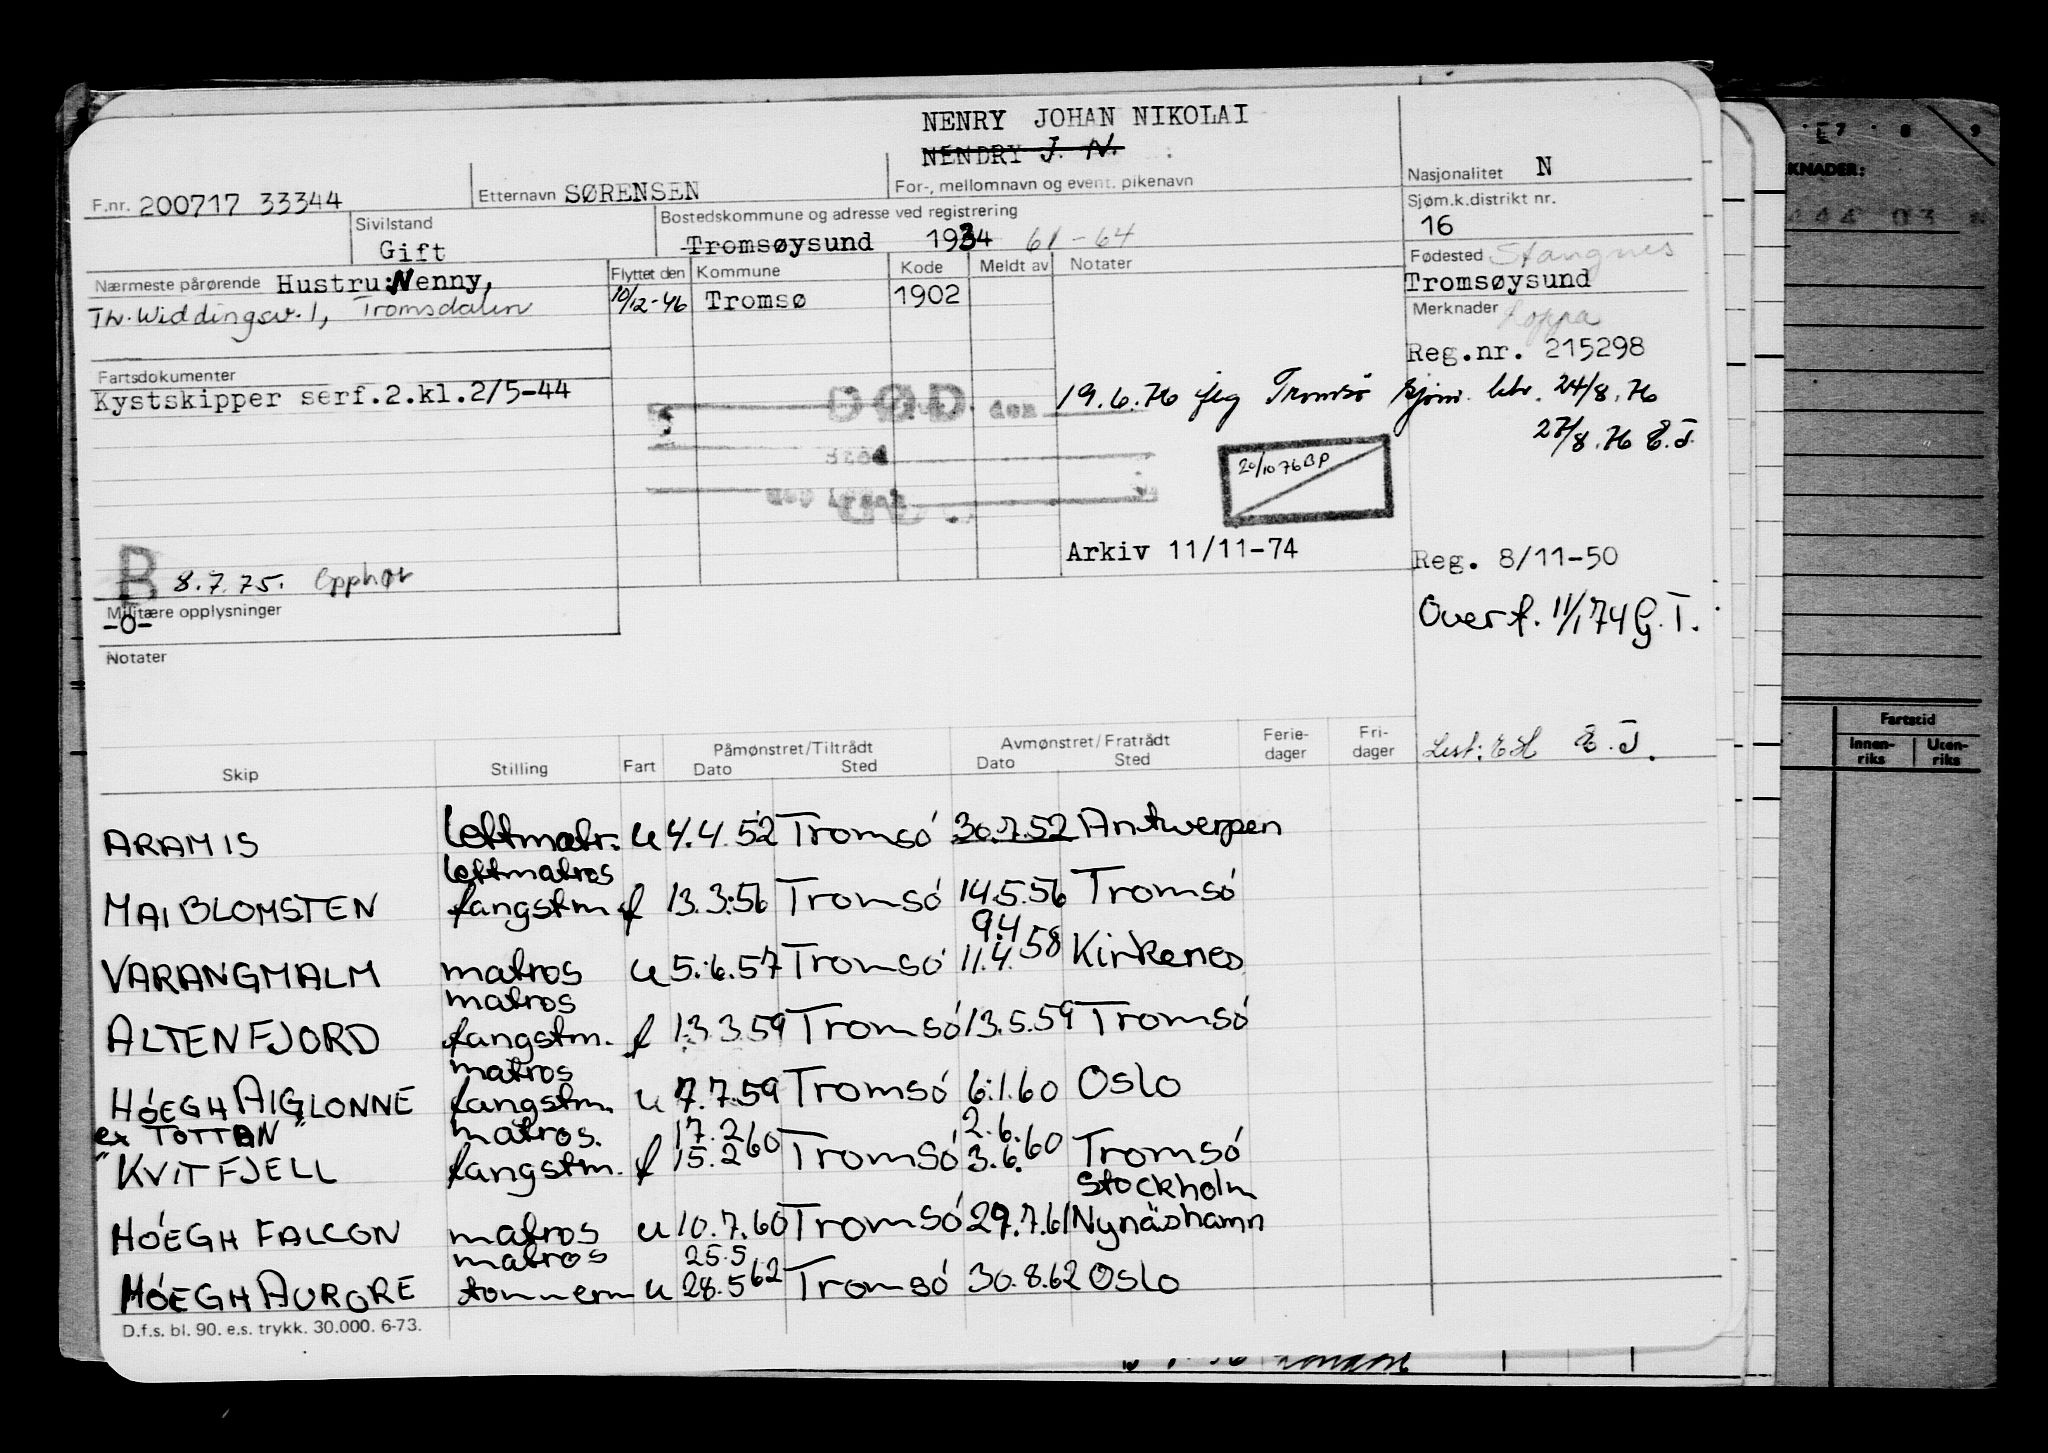 NENRY JOHAN NIKOLAI
NENDRY J. N.
F.nr. 200717 33344
Etternavn SØRENSEN
For-, mellomnavn og event. pikenavn
Nasjonalitet N
Sjøm.k.distrikt nr.
16
Sivilstand
Gift
Bostedskommune og adresse ved registrering
Tromsøysund 1934 61-64
Fødested Stangnes
Tromsøysund
Nærmeste pårørende Hustru: Nenny,
Th. Widdingsv. 1, Tromsdalen
Flyttet den Kommune Kode Meldt av Notater
10/12-46 Tromsø 1902
Merknader Loppa
Reg.nr. 215298
Fartsdokumenter
Kystskipper serf.2.kl.2/5-44
DØD
den
19.6.76 Tromsø 24/8.76
27/8.76 E.T.
20/10 76 BP
Arkiv 11/11-74
Reg. 8/11-50
B 8.7.75. Opphør
Militære opplysninger
-0-
Overf. 11/1 74 G.T.
Notater
Skip Stilling Fart Påmønstret/Tiltrådt Dato Sted Avmønstret/Fratrådt Dato Sted Ferie-dager Fri-dager
E.T.
ARAMIS lettmatr. u 4.4.52 Tromsø 30.7.52 Antwerpen
lettmatros
MAIBLOMSTEN fangstm. f 13.3.56 Tromsø 14.5.56 Tromsø
9.4
VARANGMALM matros u 5.6.57 Tromsø 11.4.58 Kirkenes
matros
ALTENFJORD fangstm. f 13.3.59 Tromsø 13.5.59 Tromsø
matros
HÓEGH AIGLONNE fangstm. u 7.7.59 Tromsø 6.1.60 Oslo
ex "TOTTAN" matros. 17.2 2.6.
"KVITFJELL fangstm. f 15.2 60 Tromsø 3.6. 60 Tromsø
Stockholm
HÓEGH FALCON matros u 10.7.60 Tromsø 29.7.61 Nynäshamn
matros 25.5
HÓEGH AURORE tømmerm u 28.5 62 Tromsø 30.8.62 Oslo
D.f.s. bl. 90. e.s. trykk. 30.000. 6-73.
7 8 9
KNADER:
Fartstid
Innen-riks Uten-riks